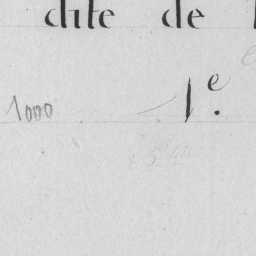 dite de
1000 1.e